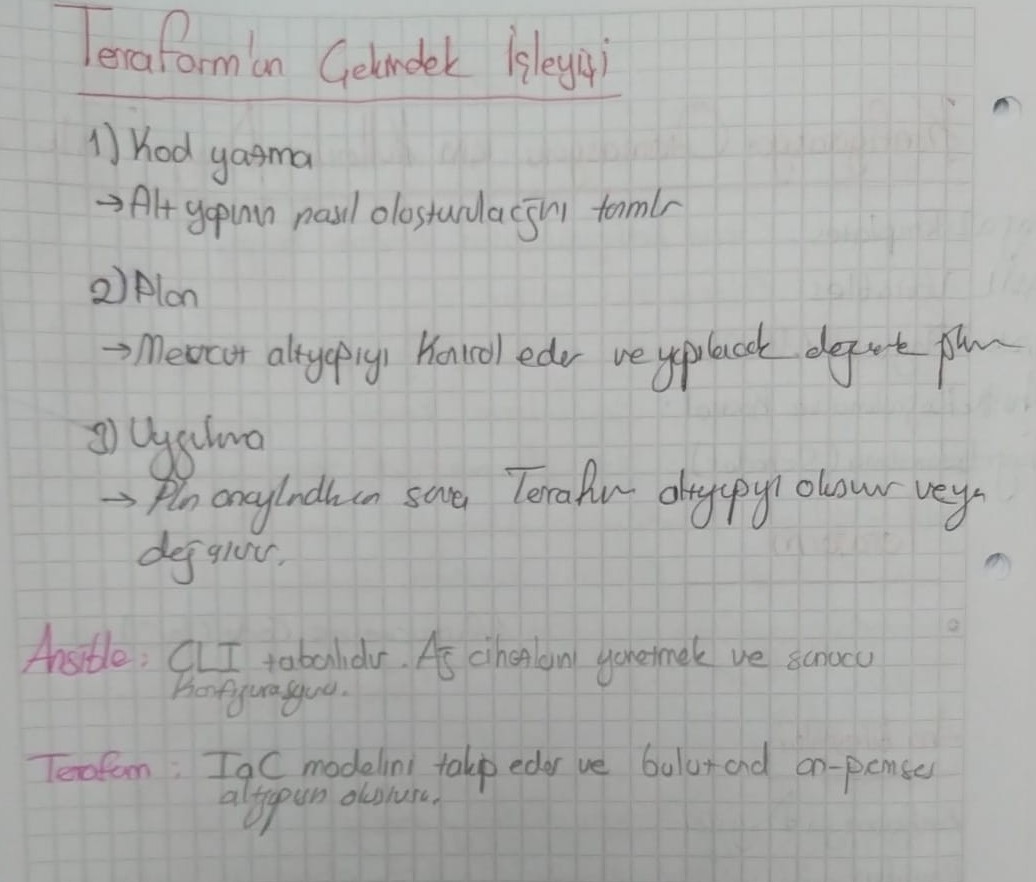 Terraform'un Çekirdek İşleyişi
1) Kod yazma
→ Alt yapının nasıl oluşturulacağını tanımlr
2) Plan
→ Mevcut altyapıyı Kontrol eder ve yapılacak
3) Uygulma
→ Pln onaylndktan sonra Terafrm altyapıyı veya
Ansible: CLI tabanlıdır. Ağ cihazlarını yönetmek ve sunucu
Konfigurasyonu.
Terafom: IaC modelini takip eder ve bulut and on-premises
altyapısı